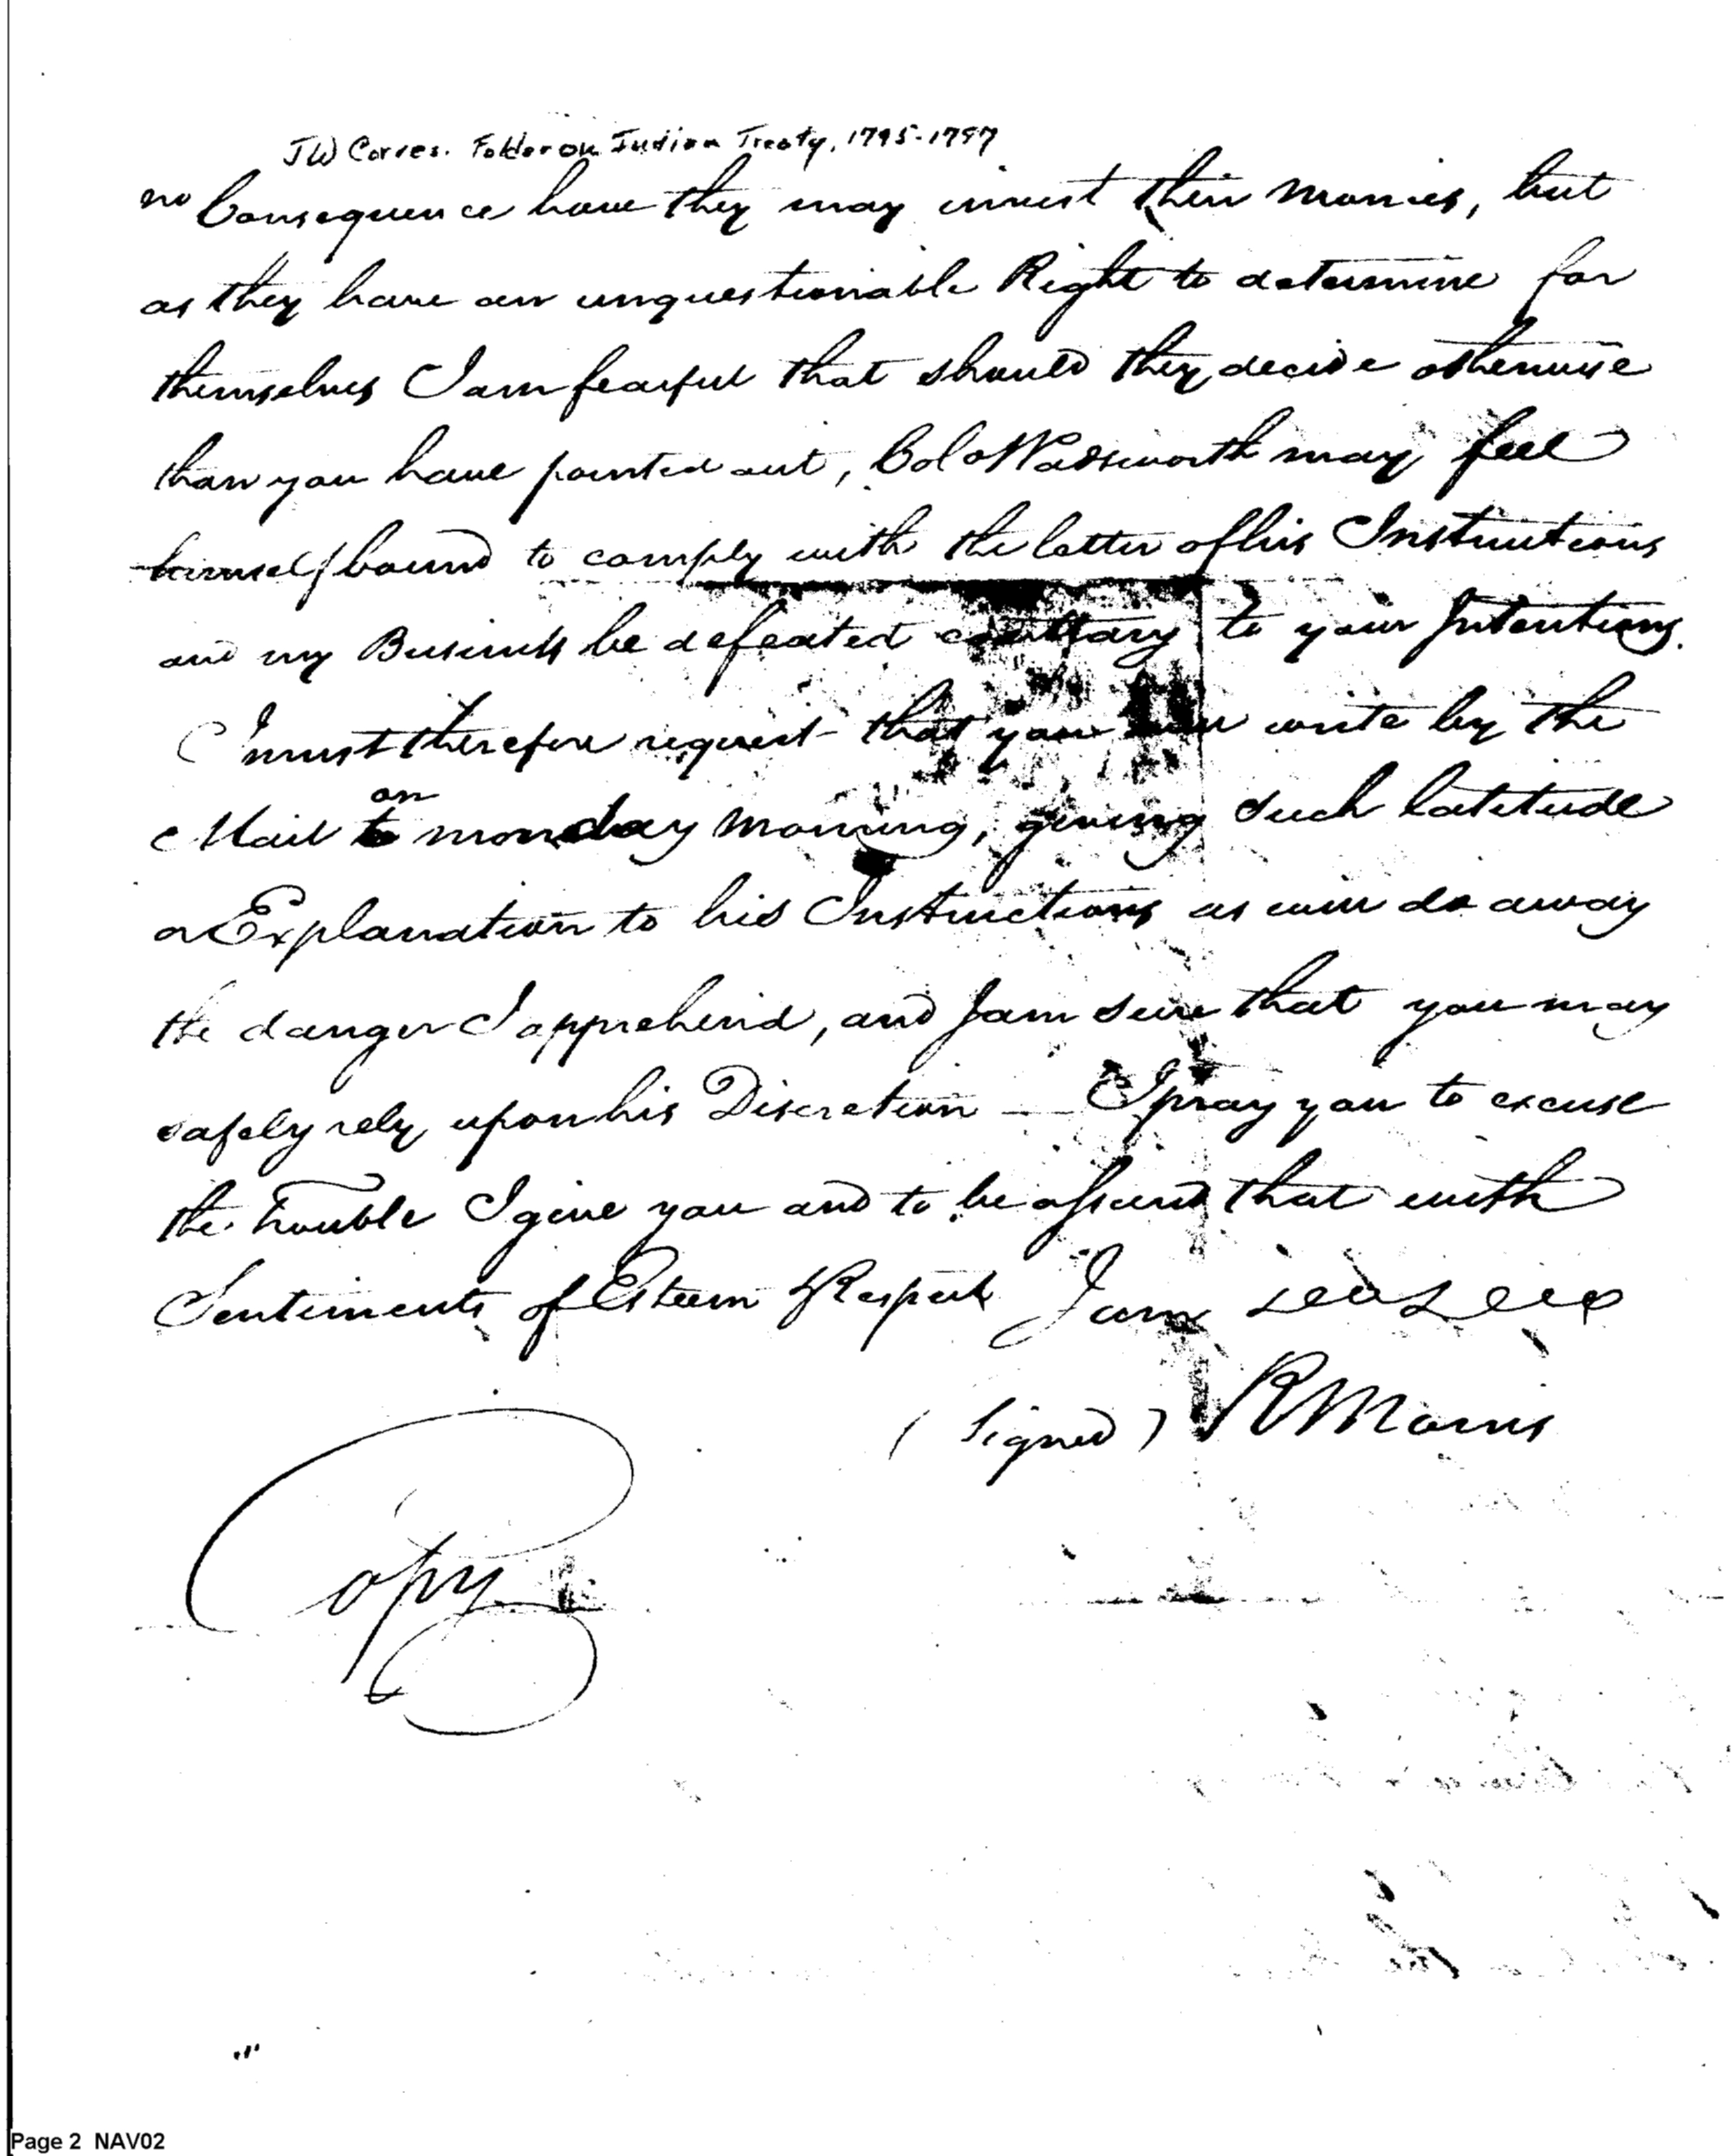 JW Corres. Folder on Indian Treaty, 1795-1797
no Consequence how they may invest their Monies, but
as they have an unquestionable Right to determine for
themselves I am fearful that should they decide otherwise
than you have pointed out, Colo Wadsworth may feel
himself bound to comply with the letter of his Instructions
and my Business be defeated contrary to your Intentions.
I must therefore request that you will write by the
on
Mail to monday Morning, giving such latitude
or Explanation to his Instructions as will do away
the danger I apprehend, and I am sure that you may
safely rely upon his Discretion — I pray you to excuse
the trouble I give you and to be assured that with
Sentiments of Esteem & Respect I am
(signed) RMorris
Copy
Page 2 NAV02